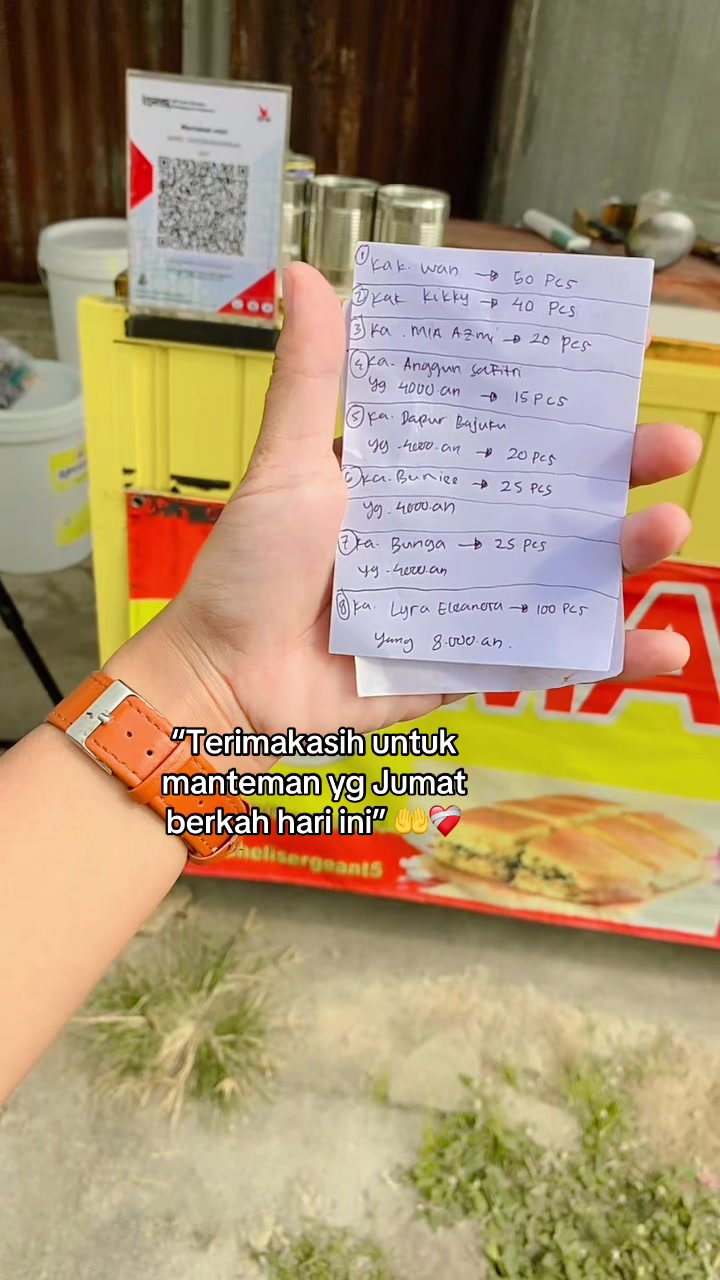 ① Kak. Wan → 50 Pcs
② Kak Kikky → 40 Pcs
③ Ka. MIA AZMi → 20 pcs
④ Ka. Anggun Safitri
yg 4000.an → 15 Pcs
⑤ Ka. Dapur Bajuku
yg .4000.an → 20 Pcs
⑥ Ka. Bunice → 25 Pcs
yg. 4000.an
⑦ Ka. Bunga → 25 Pcs
yg .4000.an
⑧ Ka. Lyra Eleanora → 100 PCS
yang 8.000.an.
MA
“Terimakasih untuk
manteman yg Jumat
berkah hari ini” 🤲❤️‍🩹